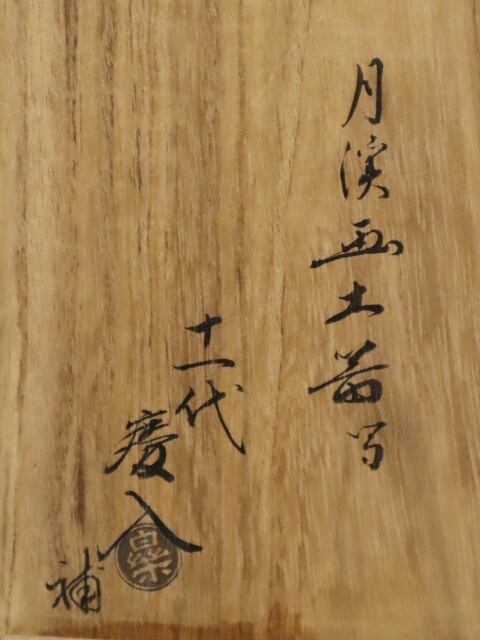 月渓画土器写
十一代
慶入
補
樂